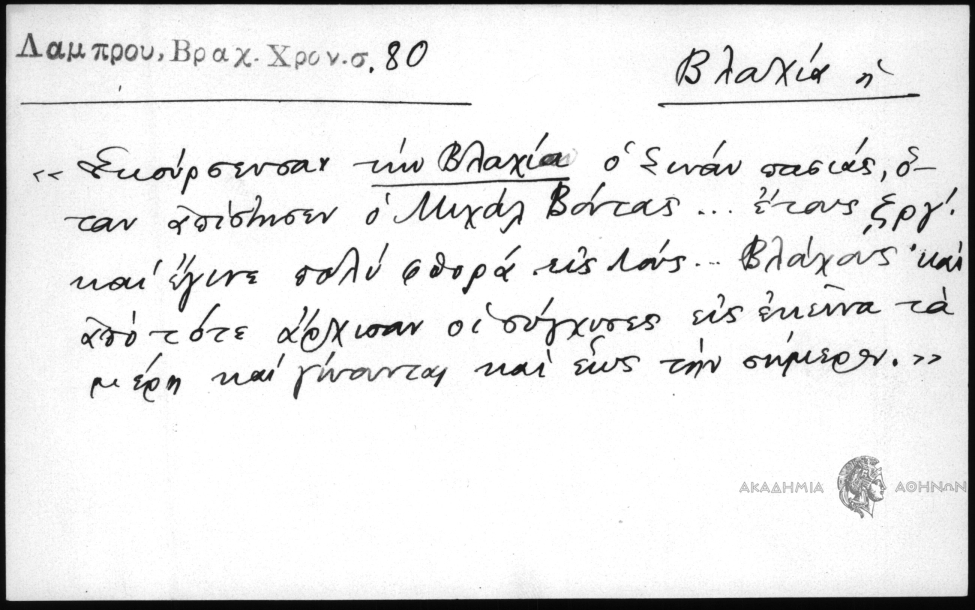 Λαμπρου, Βραχ. Χρον. σ. 80
Βλαχία ἡ
«Ἐκούρσευσαν τὴν Βλαχία ὁ Σινάν πασιάς, ὅ-
ταν ἀπίστησεν ὁ Μιχάλ Βόντας ... ἔτους ζργ΄.
καί ἔγινε πολύ φθορά εἰς τούς ... Βλάχους καί
ἀπό τότε ἄρχισαν οἱ σύγχυσες εἰς ἐκεῖνα τὰ
μέρη καί γίνονται καί ἕως τήν σήμερον.»
ΑΚΑΔΗΜΙΑ ΑΘΗΝΩΝ